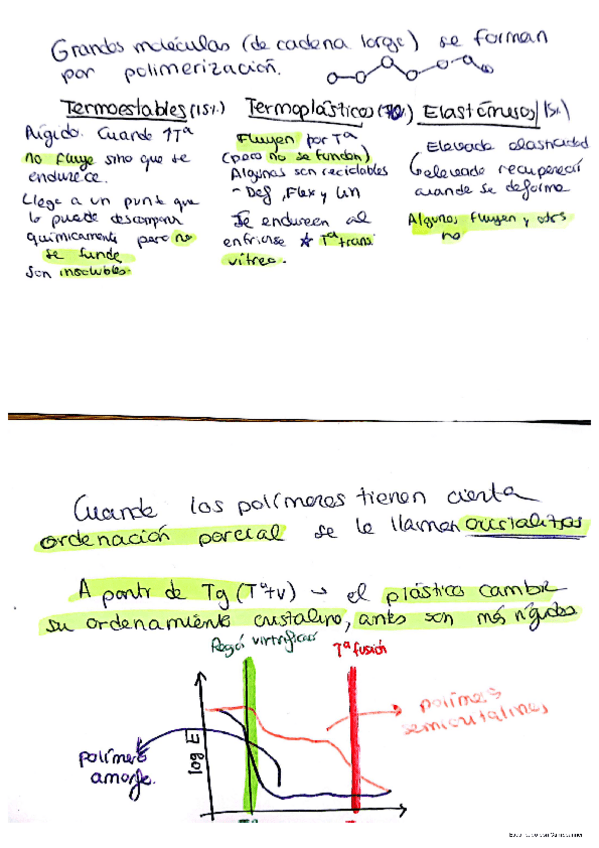 Grandes moléculas (de cadena larga) se forman
por polimerización.
Termoestables (15%)
Rígido. Cuando ↑Tª
no fluye sino que se
endurece.
Llega a un punto que
lo puede descomponer
químicamente pero no
se funde
Son insolubles.
Termoplásticos
Fluyen por Tª
(pero no se funden)
Algunos son reciclables
- Def, Flex y Lin
Se endurecen al
enfriarse * Tª trans
vítrea.
Elastómeros (15%)
Elevada elasticidad
elevada recuperación
cuando se deforma
Algunos fluyen y otros
no
Cuando los polímeros tienen cierta
ordenación parcial se le llaman cristalitos
A partir de Tg (Tªtv) → el plástico cambia
su ordenamiento cristalino, antes son más rígidos
Tª fusión
log E
polímero
amorfo.
polímeros
semicristalinos